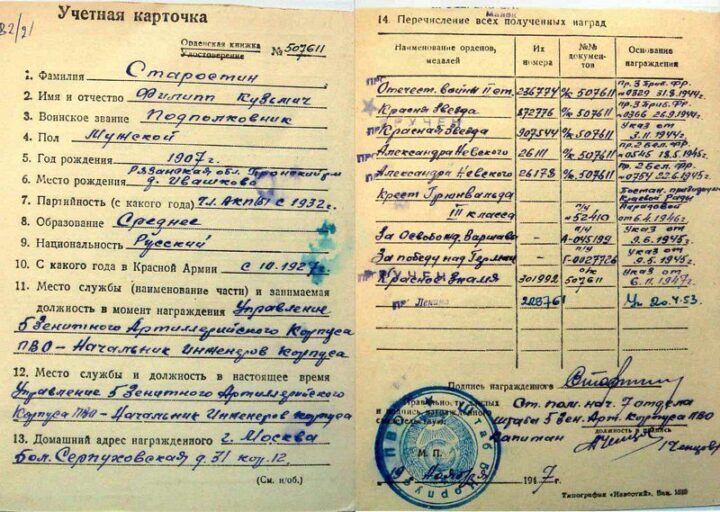 82/21
Учетная карточка
Орденская книжка
Удостоверение
№ 507611
1. Фамилия Старостин
2. Имя и отчество Филипп Кузьмич
3. Воинское звание Подполковник
4. Пол Мужской
5. Год рождения 1907 г.
Рязанская обл.
6. Место рождения д. Ивашково
7. Партийность (с какого года) чл. ВКП(б) с 1932 г.
8. Образование Среднее
9. Национальность Русский
10. С какого года в Красной Армии с 10.1927 г.
11. Место службы (наименование части) и занимаемая
должность в момент награждения Управление
5 Зенитного Артиллерийского Корпуса
ПВО - Начальник Инженеров Корпуса
12. Место службы и должность в настоящее время
Управление 5 Зенитного Артиллерийского
Корпуса ПВО - Начальник Инженеров корпуса
13. Домашний адрес награжденного г. Москва
бол. Серпуховская д. 31 кор. 12
(См. н/об.)
14. Перечисление всех полученных наград
Наименование орденов, медалей
Их номера
№№ документов
Основание награждения
Отечест. войны II ст. 236774 о/к 507611 пр. 3 Приб. Фр. №0329 31.8.1944 г.
Красная Звезда 872776 о/к 507611 пр. 3 Приб. Фр. №0366 26.9.1944 г.
Красная Звезда 907544 о/к 507611 Указ от 3.11.1944 г.
Александра Невского 26111 о/к 507611 пр. 2 Бел. Фр. №0545 18.5.1945 г.
Александра Невского 26178 о/к 507611 пр. 2 Бел. Фр. №0754 22.6.1945 г.
Крест Грюнвальда
III класса - п/ч №52410 Постан. президиума Краевой Рады Народовой от 6.4.1946 г.
За Освобожд. Варшавы - п/ч А-045199 Указ от 9.6.1945 г.
За победу над Герман - п/ч Г-0027726 Указ от 9.5.1945 г.
Красное Знамя 301992 о/к 507611 Указ от 6.11.1947 г.
Ленина 228761 Ук 20.4.53.
Подпись награжденного
Правильность данных
и подпись награжденного
свидетельствую:
Ст. пом. нач. 7 отдела
штаба 5 Зен. Арт. Корпуса ПВО
должность и подпись
Капитан
/Ченцов/
М. П.
1947 г.
Типография «Известий». Зак.